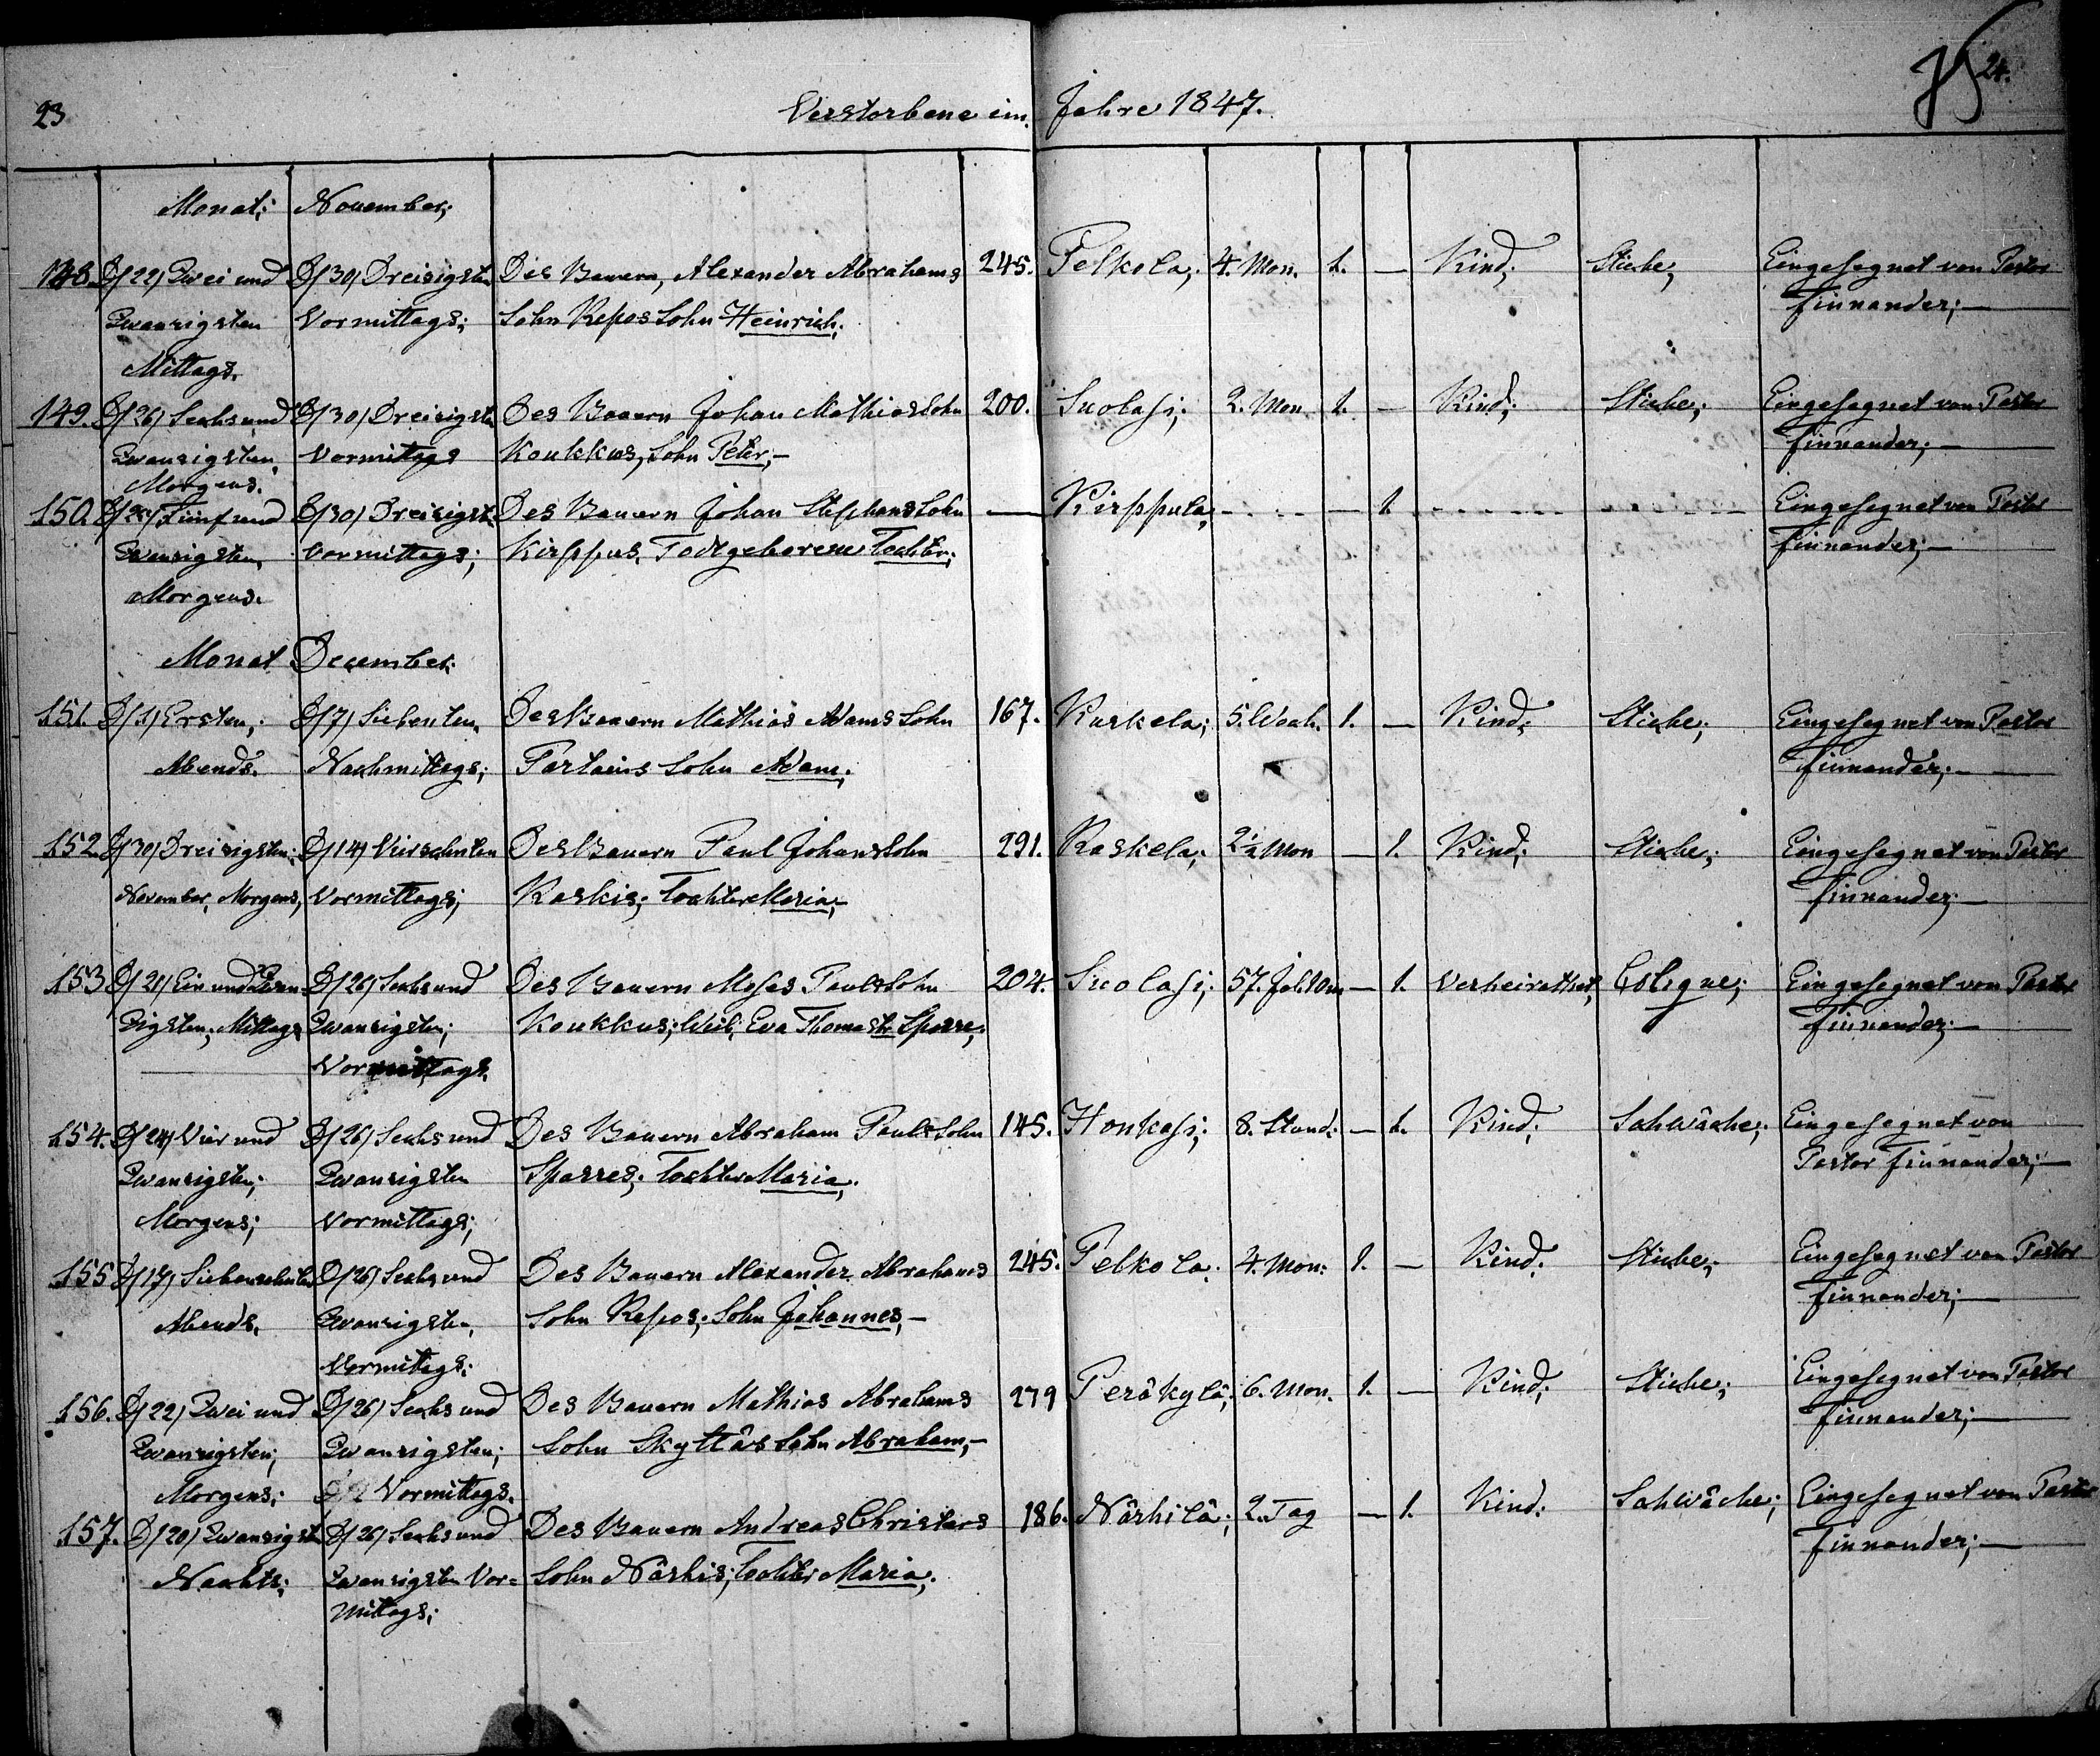 23
Verstorbene im Jahre 1847.
24.
Monat; November;
148. D/22/ Zwei und D/30/ Dreisigsten Des Bauern, Alexander Abrahams 245. Pelkola; 4. Mon. 1. — Kind; Stiche; Eingesegnet von Pastor
Zwanzigsten Vormittags; Sohn Repos Sohn Heinrich; Finnander; —
Mittags.
149. D/26/ Sechs und D/30/ Dreisigsten Des Bauern Johan Mathias Sohn 200. Suolasi; 2. Mon. 1. — Kind; Stiche; Eingesegnet von Pastor
Zwanzigsten, Vormittags Koukkus, Sohn Peter; — Finnander; —
Morgens.
150. D/25/ Fünf und D/30/ Dreisigst. Des Bauern Johan Stephans Sohn — Kirppula; — 1. Eingesegnet von Pastor
Zwanzigsten, Vormittags; Kirppus, Todtgeborene Tochter; Finnander; —
Morgens.
Monat December.
151. D/1/ Ersten; D/7/ Siebenten, Des Bauern Mathias Adams Sohn 167. Kaskela; 5. Woch. 1. — Kind; Stiche; Eingesegnet von Pastor
Abends. Nachmittags; Partains Sohn Adam; Finnander; —
152. D/30/ Dreisigsten; D/14/ Vierzehnten Des Bauern Paul Johans Sohn 291. Kaskela; 2½ Mon — 1. Kind; Stiche; Eingesegnet von Pastor
November, Morgens, Vormittags; Kaskis; Tochter Maria; Finnander; —
153 D/21/ Ein und Zwan- D/26/ Sechs und Des Bauern Moses Pauls Sohn 204. Suolasi; 57. — 1. Verheirathet, Eingesegnet von Pastor
zigsten, Mittags Zwanzigsten; Koukkus; Weib; Eva Thomastr. Sparre; Finnander; —
Vormittags.
154. D/24/ Vier und D/26/ Sechs und Des Bauern Abraham Pauls Sohn 145. Honkasi; 8. Stund: — 1. Kind; Schwäche; Eingesegnet von
Zwanzigsten; Zwanzigsten Sparres; Tochter Maria. Pastor Finnander; —
Morgens; Vormittags;
155 D/17/ Siebenzehnten D/26/ Sechs und Des Bauern Alexander Abrahams 245. Pelkola; 4. Mon: 1. — Kind; Stiche; Eingesegnet von Pastor
Abends. Zwanzigsten, Sohn Repos; Sohn Johannes, — Finnander; —
Vormittags.
156. D/22/ Zwei und D/26/ Sechs und Des Bauern Mathias Abrahams 279 Peräkylä; 6. Mon. 1. — Kind; Stiche; Eingesegnet von Pastor
Zwanzigsten; Zwanzigsten; Sohn Skyttäs Sohn Abraham, — Finnander; —
Morgens; Vormittags.
157. D/20/ Zwanzigst. D/26/ Sechs und Des Bauern Andreas Christers 186. Närhilä; 2. Tag — 1. Kind: Schwäche; Eingesegnet von Pastor
Nachts; Zwanzigsten Vor- Sohn Närhis; Tochter Maria; Finnander; —
mittags;